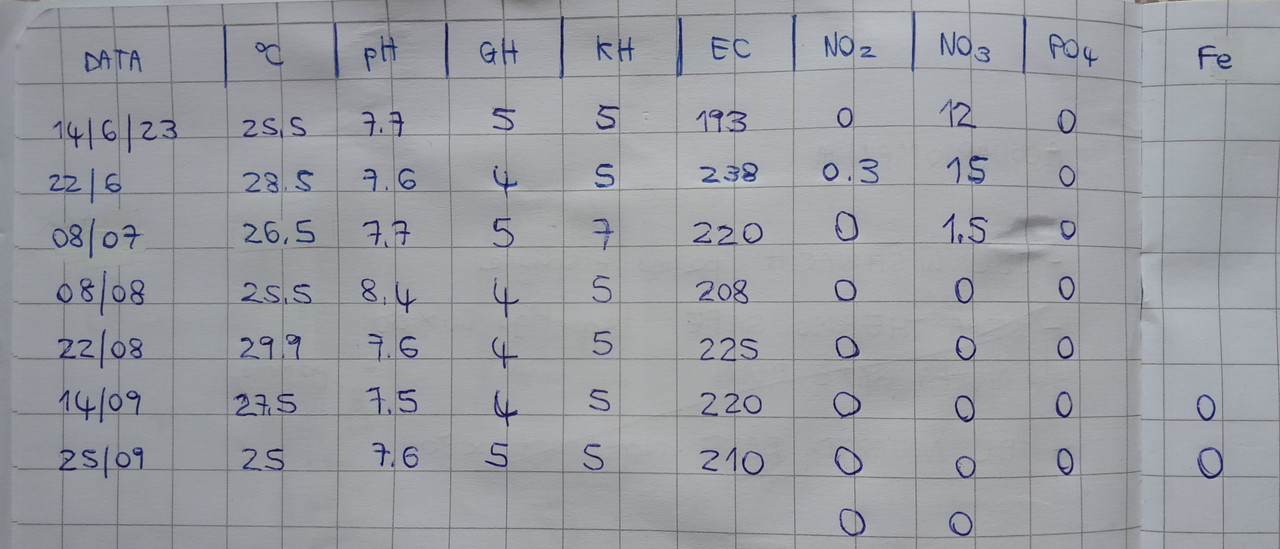 DATA | °C | pH | GH | KH | EC | NO2 | NO3 | PO4 Fe
14/6/23 25.5 7.7 5 5 193 0 12 0
22/6 28.5 7.6 4 5 238 0.3 15 0
08/07 26.5 7.7 5 7 220 0 1.5 0
08/08 25.5 8.4 4 5 208 0 0 0
22/08 29.9 7.6 4 5 225 0 0 0
14/09 27.5 7.5 4 5 220 0 0 0 0
25/09 25 7.6 5 5 210 0 0 0 0
0 0